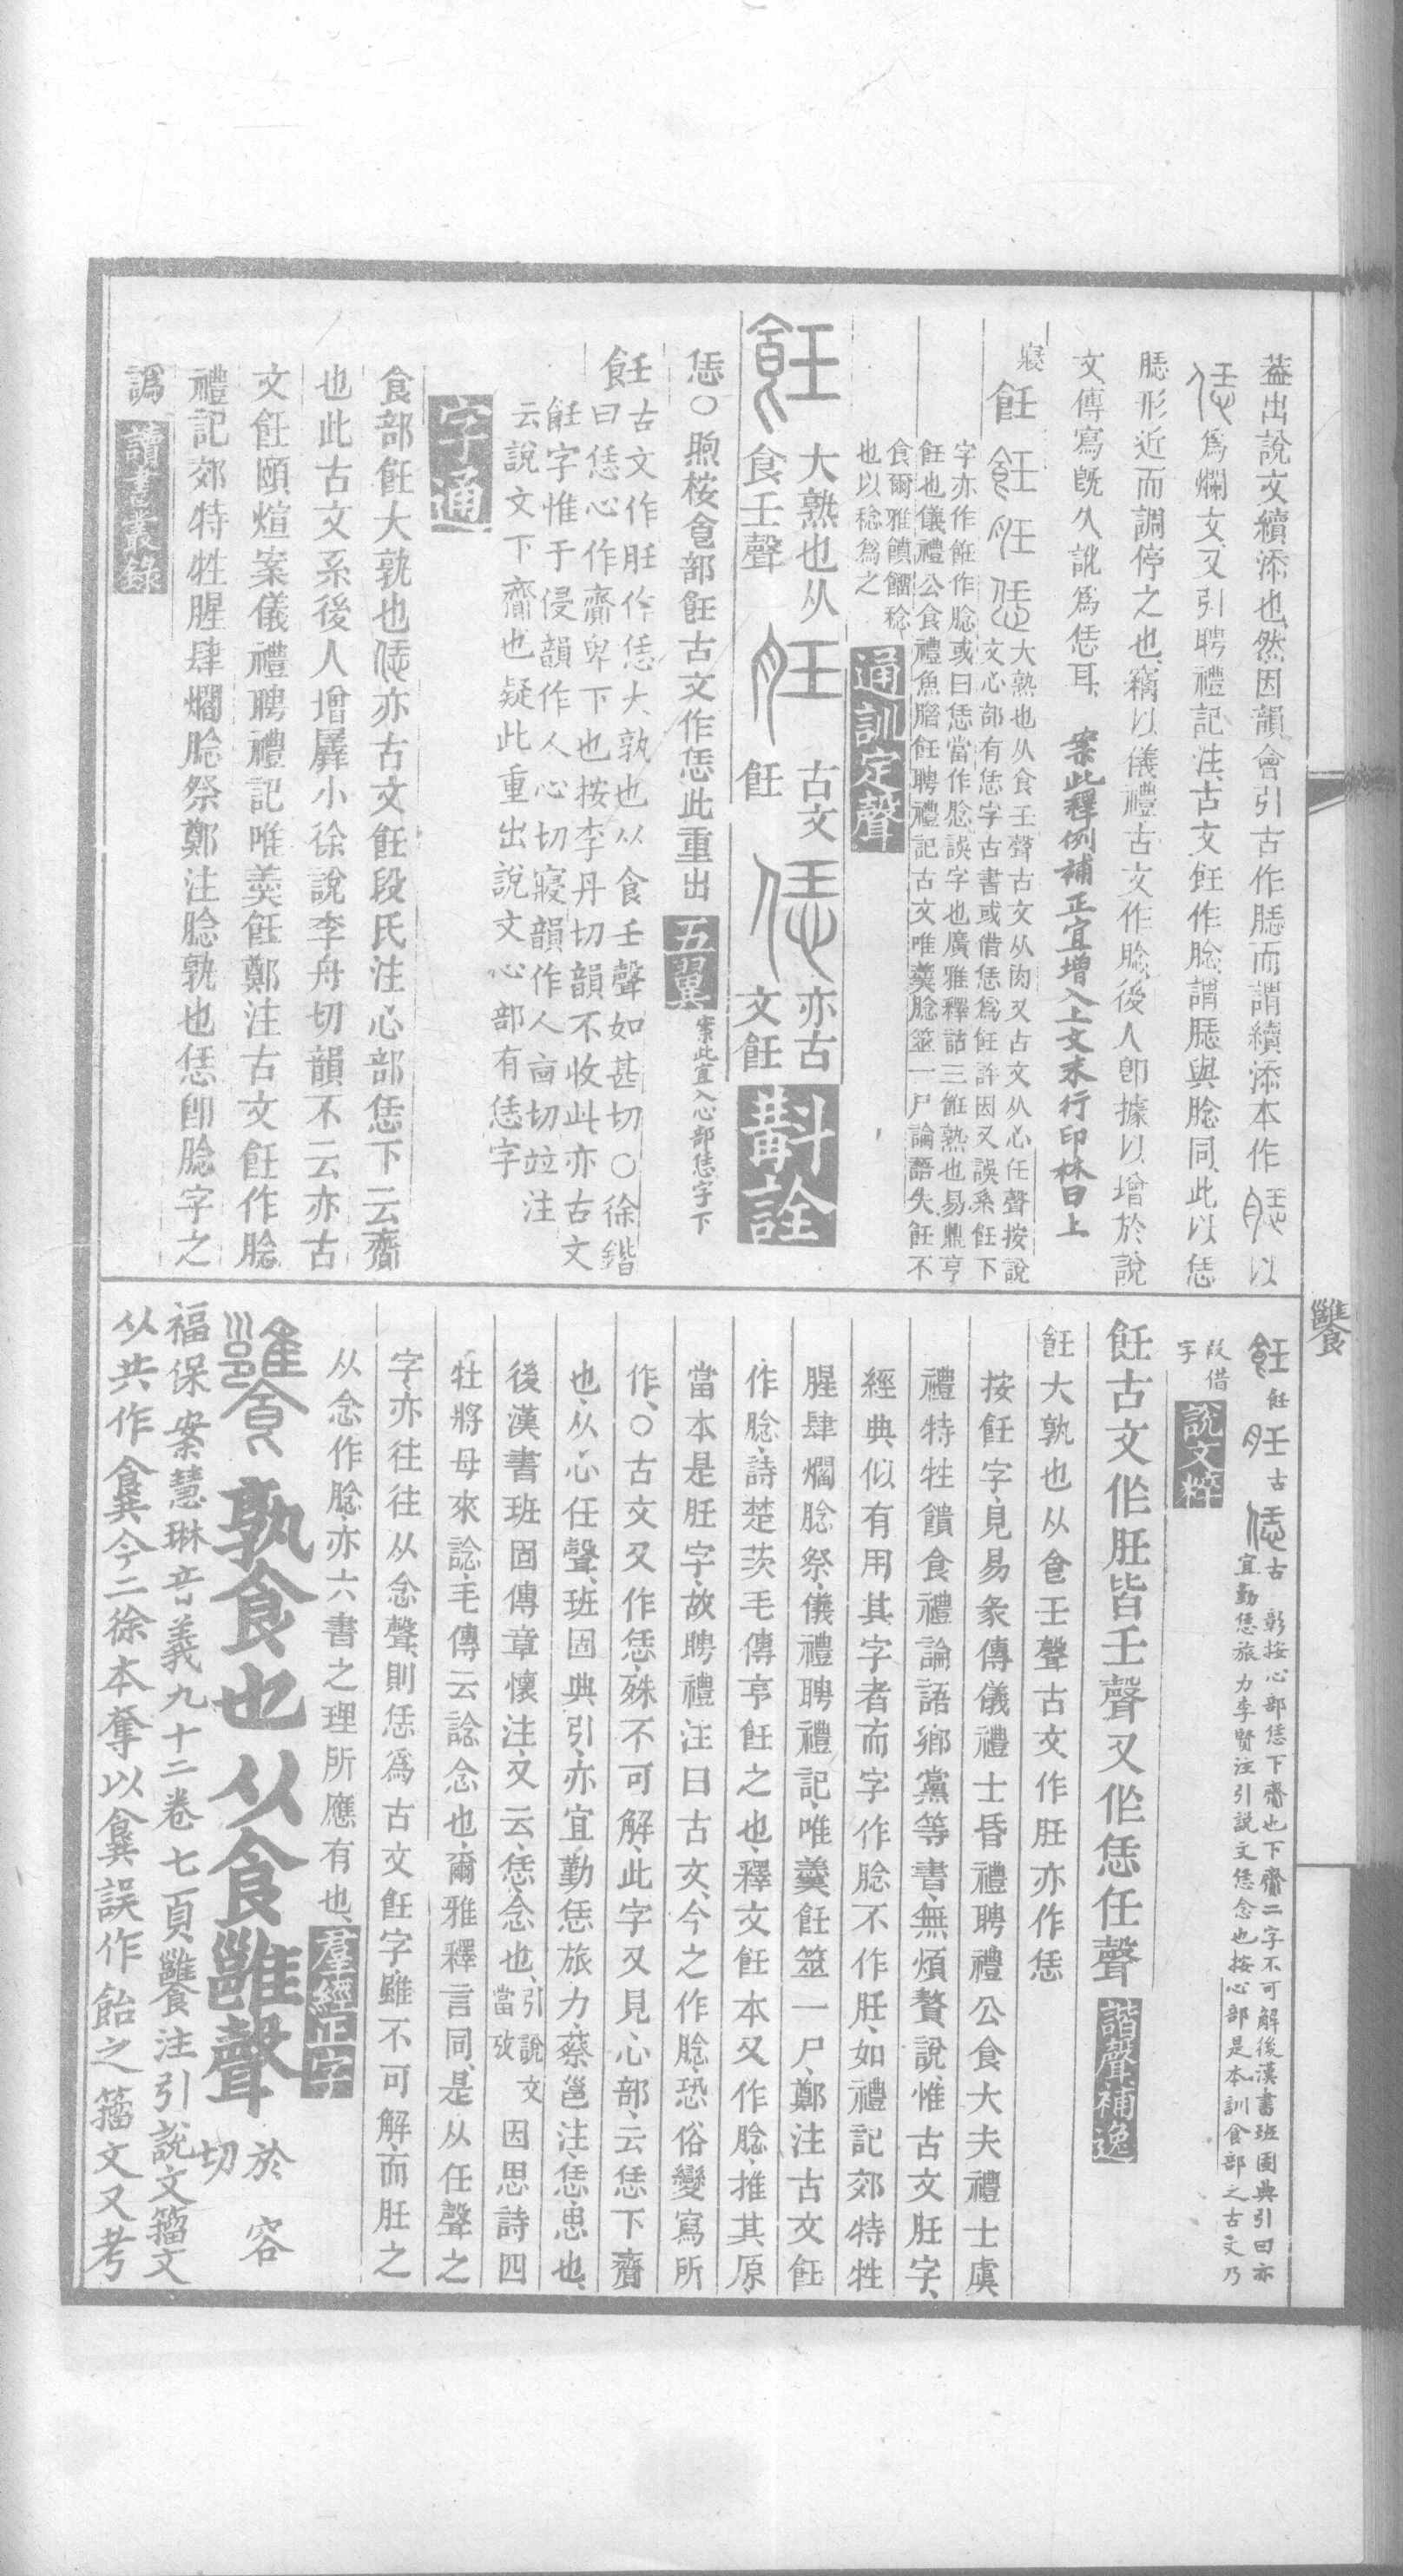 葢出說文續添也然因韻會引古作𦚏而謂續添本作𦚏以
恁爲爛文又引聘禮記注古文飪作腍謂𦚏與腍同此以恁
𦚏形近而調停之也竊以儀禮古文作腍後人卽據以增於說
文傳寫旣久訛爲恁耳 案此釋例補正宜增入上文末行印林曰上
寢
飪 飪 胜 恁
大熟也从食壬聲古文从肉又古文从心任聲按說
文心部有恁字古書或借恁爲飪許因又誤系飪下
字亦作餁作腍或曰恁當作腍誤字也廣雅釋詁三餁熟也易鼎亨
飪也儀禮公食禮魚腊飪聘禮記古文唯羹腍筮一尸論語失飪不
食爾雅饙餾稔
也以稔爲之
通訓定聲
飪 大熟也从
食壬聲 胜 古文
飪 恁 亦古
文飪 斠詮
恁○煦桉食部飪古文作恁此重出 五翼 案此宜入心部恁字下
飪古文作胜作恁大孰也从食壬聲如甚切○徐鍇
曰恁心作齋卑下也按李舟切韻不收此亦古文
飪字惟于侵韻作人心切寢韻作人亩切竝注
云說文下齋也疑此重出說文心部有恁字
字通
食部飪大孰也恁亦古文飪段氏注心部恁下云齎
也此古文系後人增羼小徐說李舟切韻不云亦古
文飪頤煊案儀禮聘禮記唯羹飪鄭注古文飪作腍
禮記郊特牲腥肆爓腍祭鄭注腍孰也恁卽腍字之
譌 讀書叢錄
飪 飪 胜 古 恁 古
彰按心部恁下齋也下齋二字不可解後漢書班固典引曰亦
宜勤恁旅力李賢注引説文恁念也按心部是本訓食部之古文乃
叚借
字 說文粹
飪古文作胜皆壬聲又作恁任聲 諧聲補逸
飪大孰也从食壬聲古文作胜亦作恁
按飪字見易彖傳儀禮士昏禮聘禮公食大夫禮士虞
禮特牲饋食禮論語鄉黨等書無煩贅說惟古文胜字
經典似有用其字者而字作腍不作胜如禮記郊特牲
腥肆爓腍祭儀禮聘禮記唯羹飪筮一尸鄭注古文飪
作腍詩楚茨毛傳亨飪之也釋文飪本又作腍推其原
當本是胜字故聘禮注曰古文今之作腍恐俗變寫所
作○古文又作恁殊不可解此字又見心部云恁下齎
也从心任聲班固典引亦宜勤恁旅力蔡邕注恁思也
後漢書班固傳章懷注文云恁念也引說文
當攷 因思詩四
牡將母來諗毛傳云諗念也爾雅釋言同是从任聲之
字亦往往从念聲則恁爲古文飪字雖不可解而胜之
从念作腍亦六書之理所應有也 羣經正字
饔 孰食也从食雝聲 於容
切
福保案慧琳音義九十二卷七頁饔注引說文籀文
从共作䬺今二徐本奪以䬺誤作飴之籀文又考
饔